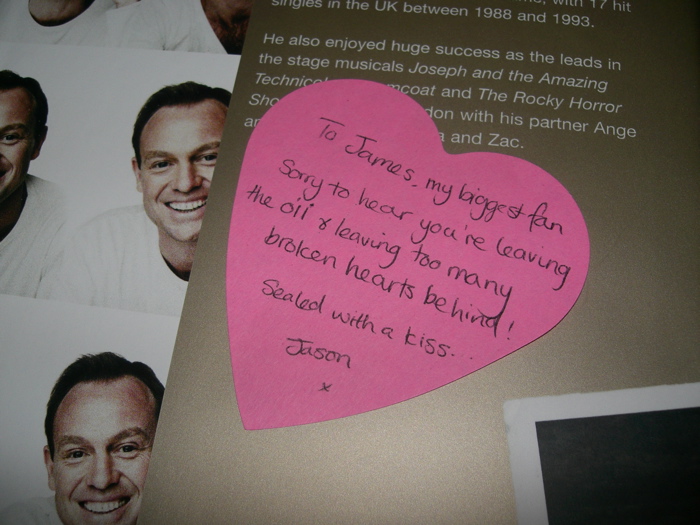 with 17 hit
singles in the UK between 1988 and 1993.
He also enjoyed huge success as the leads in
the stage musicals Joseph and the Amazing
coat and The Rocky Horror
with his partner Ange
and Zac.
To James, my biggest fan
Sorry to hear you're leaving
the oii & leaving too many
broken hearts behind!
Sealed with a kiss...
Jason
x